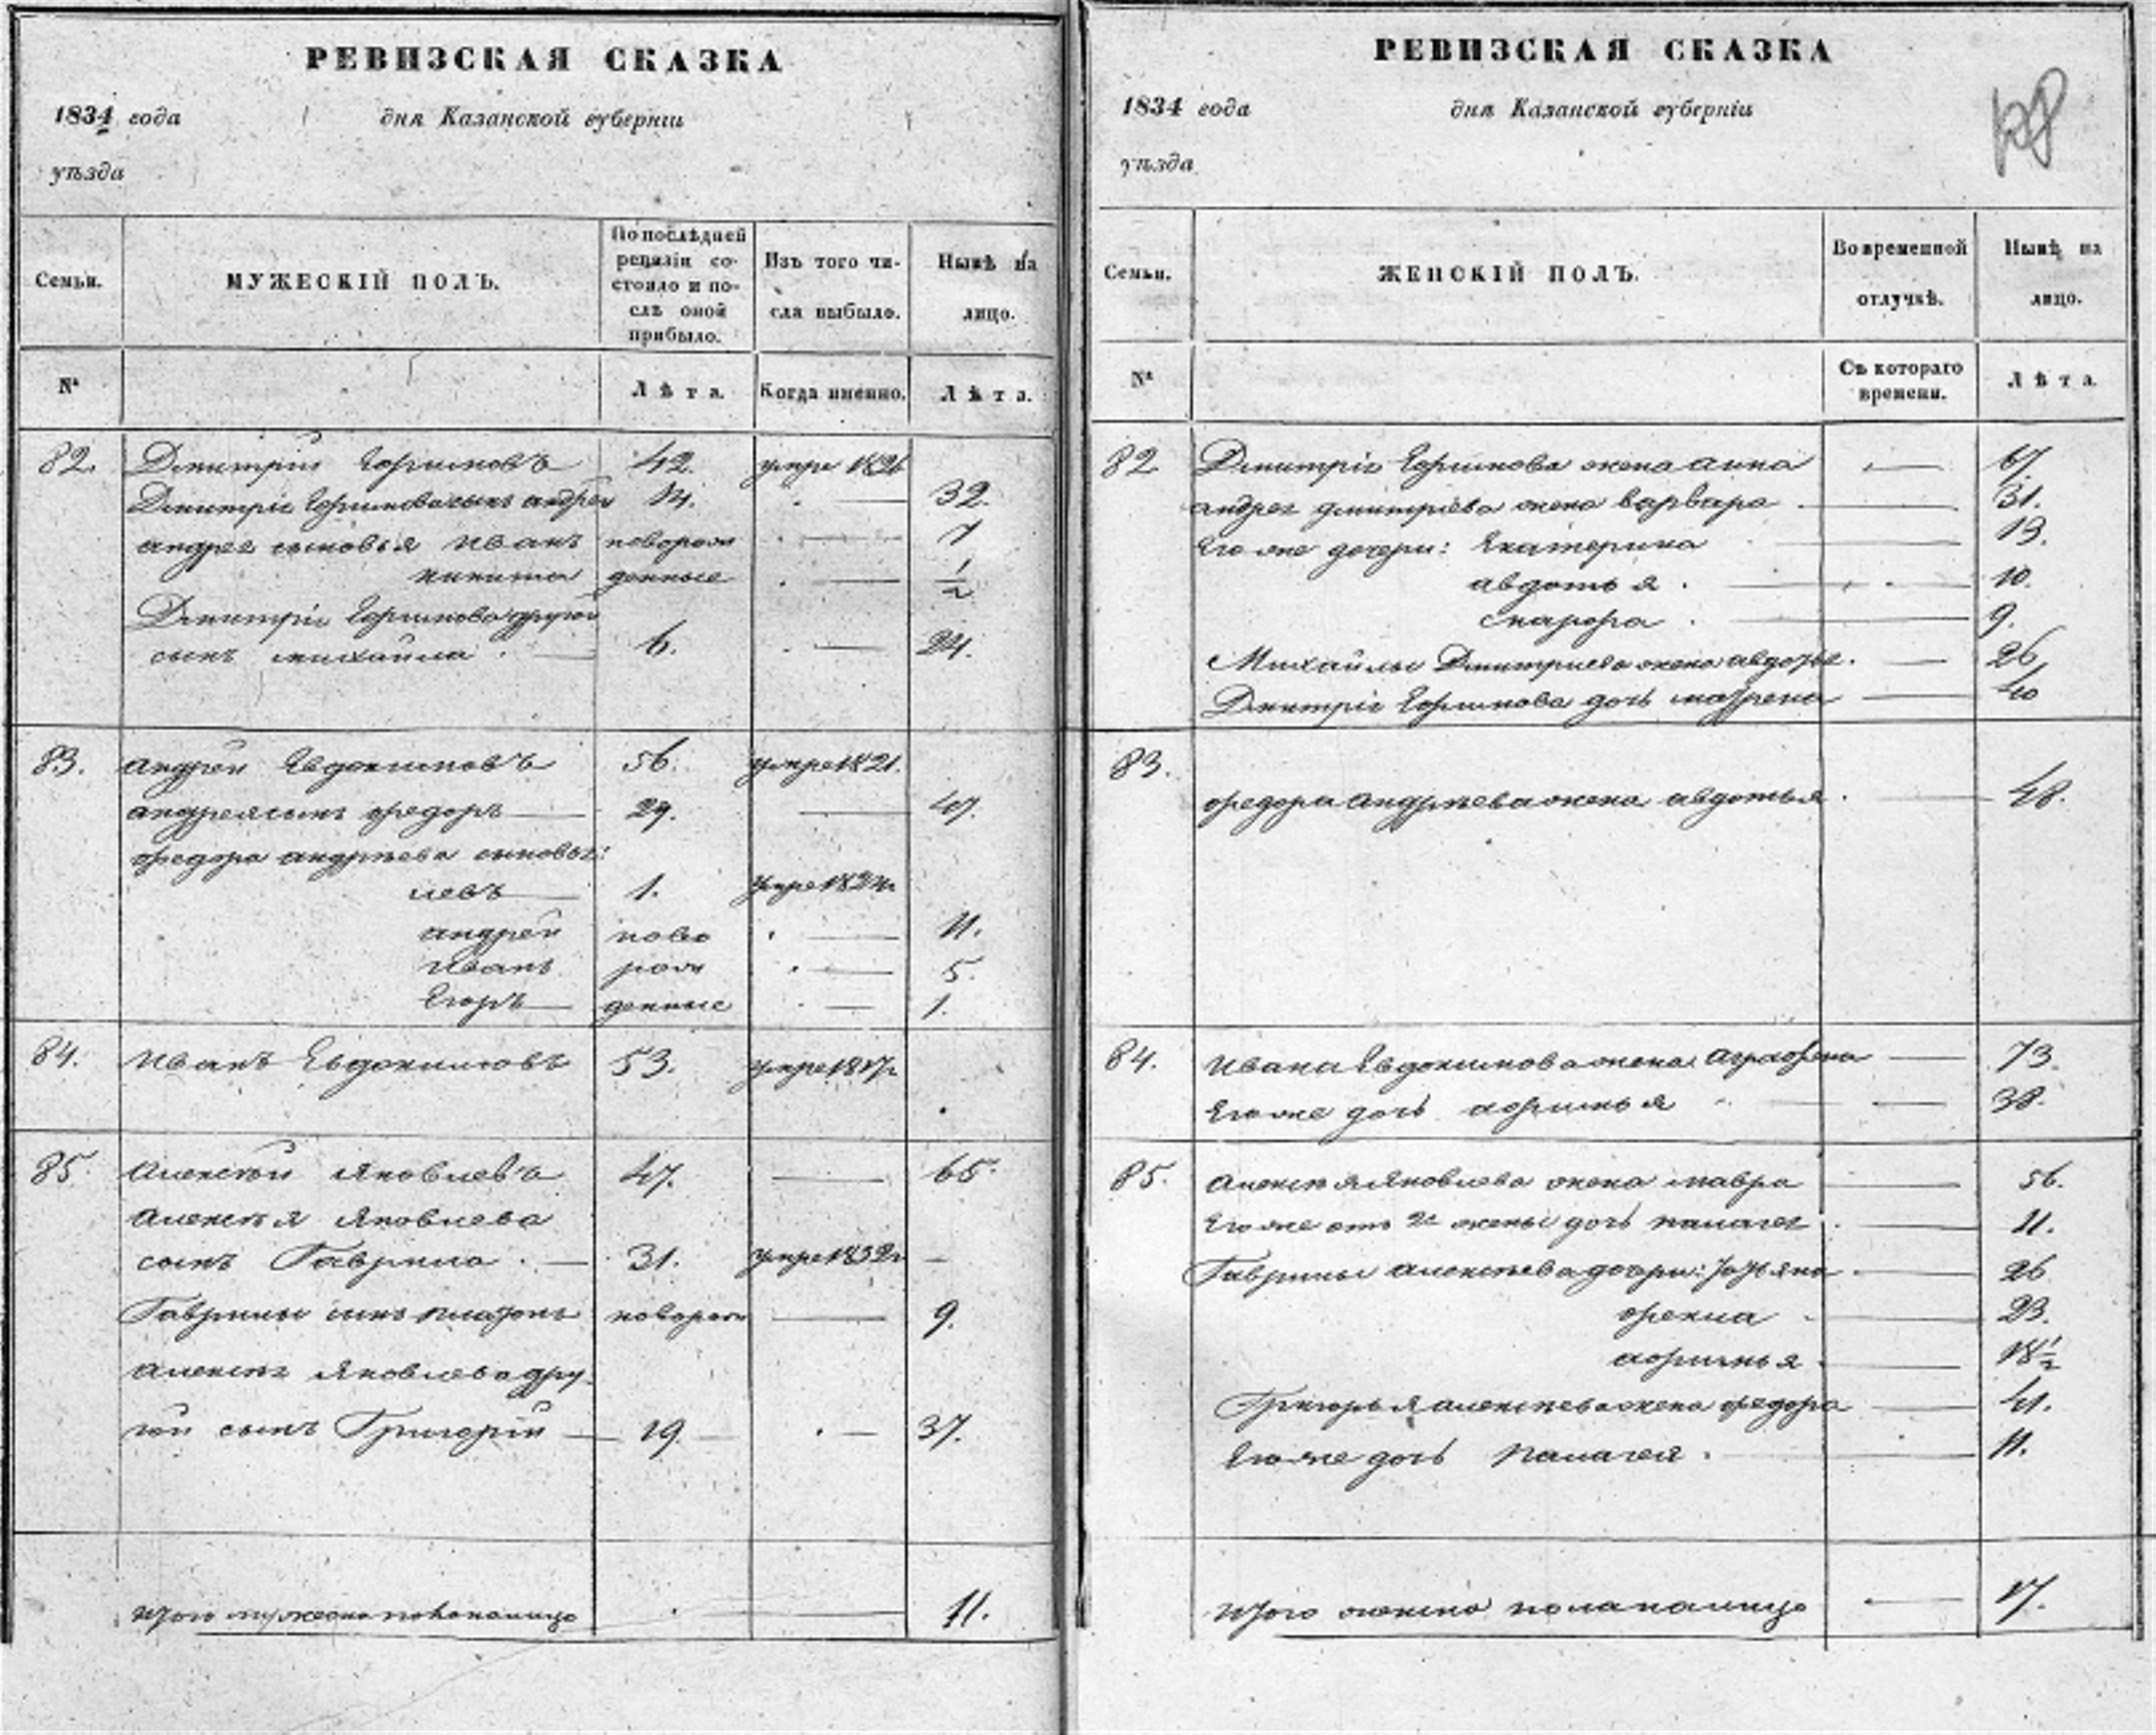 РЕВИЗСКАЯ СКАЗКА
1834 года дня Казанской губерніи
уѣзда
Семьи. МУЖЕСКІЙ ПОЛЪ. По послѣдней ревизіи со-
стояло и по-
слѣ оной
прибыло. Изъ того чи-
сла выбыло. Нынѣ на
лицо.
№ Лѣта. Когда именно. Лѣта.
82. Дмитрій 42. умре 1826
Дмитріе сынъ андрей 14. 32.
андрее сыновья Иванъ новорож 7
никита денные 1/2
Дмитріе другой
сынъ михайла 6. 24.
83. андрей Евдокимовъ 56. умре 1821.
андрея сынъ федоръ 29. 47.
федора андрѣева сыновья:
левъ 1. умре 1824
андрей ново 11.
Иванъ рож 5.
Егоръ денные 1.
84. Иванъ Евдокимовъ 53. умре 1817
85. Алексѣй Яковлевъ 47. 65.
Алексѣя Яковлева
сынъ Гаврила 31. умре 1832
Гаврилы сынъ платонъ новорож 9.
Алексѣе Яковлева дру-
гой сынъ Григорій 19. 37.
Итого мужеска пола налицо 11.
РЕВИЗСКАЯ СКАЗКА
1834 года дня Казанской губерніи
уѣзда
Семьи. ЖЕНСКІЙ ПОЛЪ. Во временной
отлучкѣ. Нынѣ на
лицо.
№ Съ котораго
времени. Лѣта.
82 Дмитріе жена анна 67
андрее дмитріева жена варвара 31.
Его же дочери: Екатерина 13.
авдотья 10.
9.
Михайлы Дмитриева жена авдотья 26
Дмитріе дочь матрена 40
83. федора андрѣева жена авдотья 48.
84. Ивана Евдокимова жена Аграфена 73.
Его же дочь 38.
85. Алексѣя Яковлева жена мавра 56.
Его же отъ 2й жены дочь палагея 11.
Гаврилы алексѣева дочери: Татьяна 26
фекла 23.
18 1/2
Григорья алексѣева жена федора 41.
Его же дочь Палагея 11.
Итого женска пола налицо 17.